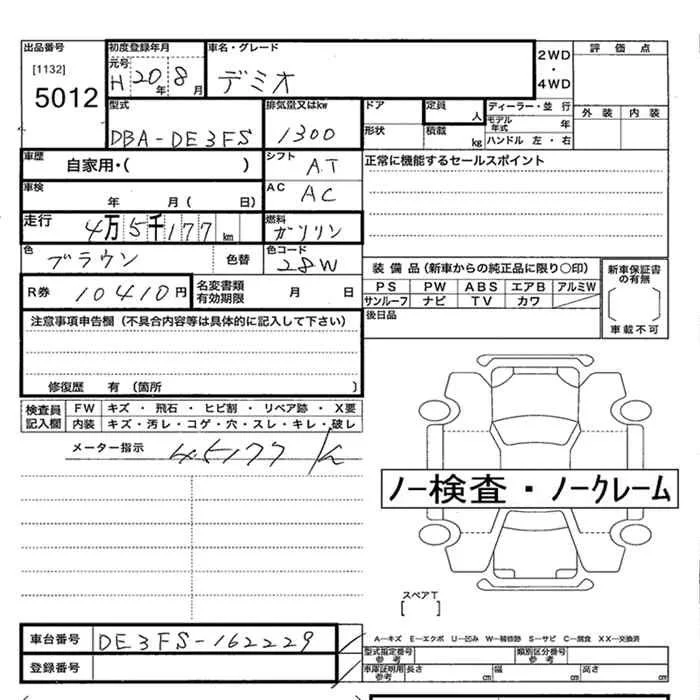 出品番号 初度登録年月 車名・グレード
[1132] 5012
元号 H 20年 8月
デミオ
2WD・4WD
評価点
外装 内装
型式 DBA-DE3FS
排気量又はkw 1300
ドア
形状
定員 人
積載 kg
ディーラー・並行
モデル年式 年
ハンドル 左・右
車歴 自家用・( )
シフト AT
正常に機能するセールスポイント
車検 年 月( 日)
AC AC
走行 4万5千177km
燃料 ガソリン
色 ブラウン 色替
色コード 28W
装備品(新車からの純正品に限り○印)
PS PW ABS エアB アルミW
サンルーフ ナビ TV カワ
新車保証書の有無
[ ]
車載不可
R券 10410円
名変書類有効期限 月 日
後日品
注意事項申告欄(不具合内容等は具体的に記入して下さい)
修復歴 有(箇所 )
検査員記入欄
FW キズ・飛石・ヒビ割・リペア跡・X要
内装 キズ・汚レ・コゲ・穴・スレ・キレ・破レ
メーター指示 45177 k
ノー検査・ノークレーム
スペアT
[ ]
A―キズ E―エクボ U―凹み W―補修跡 S―サビ C―腐食 XX―交換済
車台番号 DE3FS-162229
型式指定番号 参考
類別区分番号 参考
登録番号
車庫証明用 参考 長さ cm 幅 cm 高さ cm